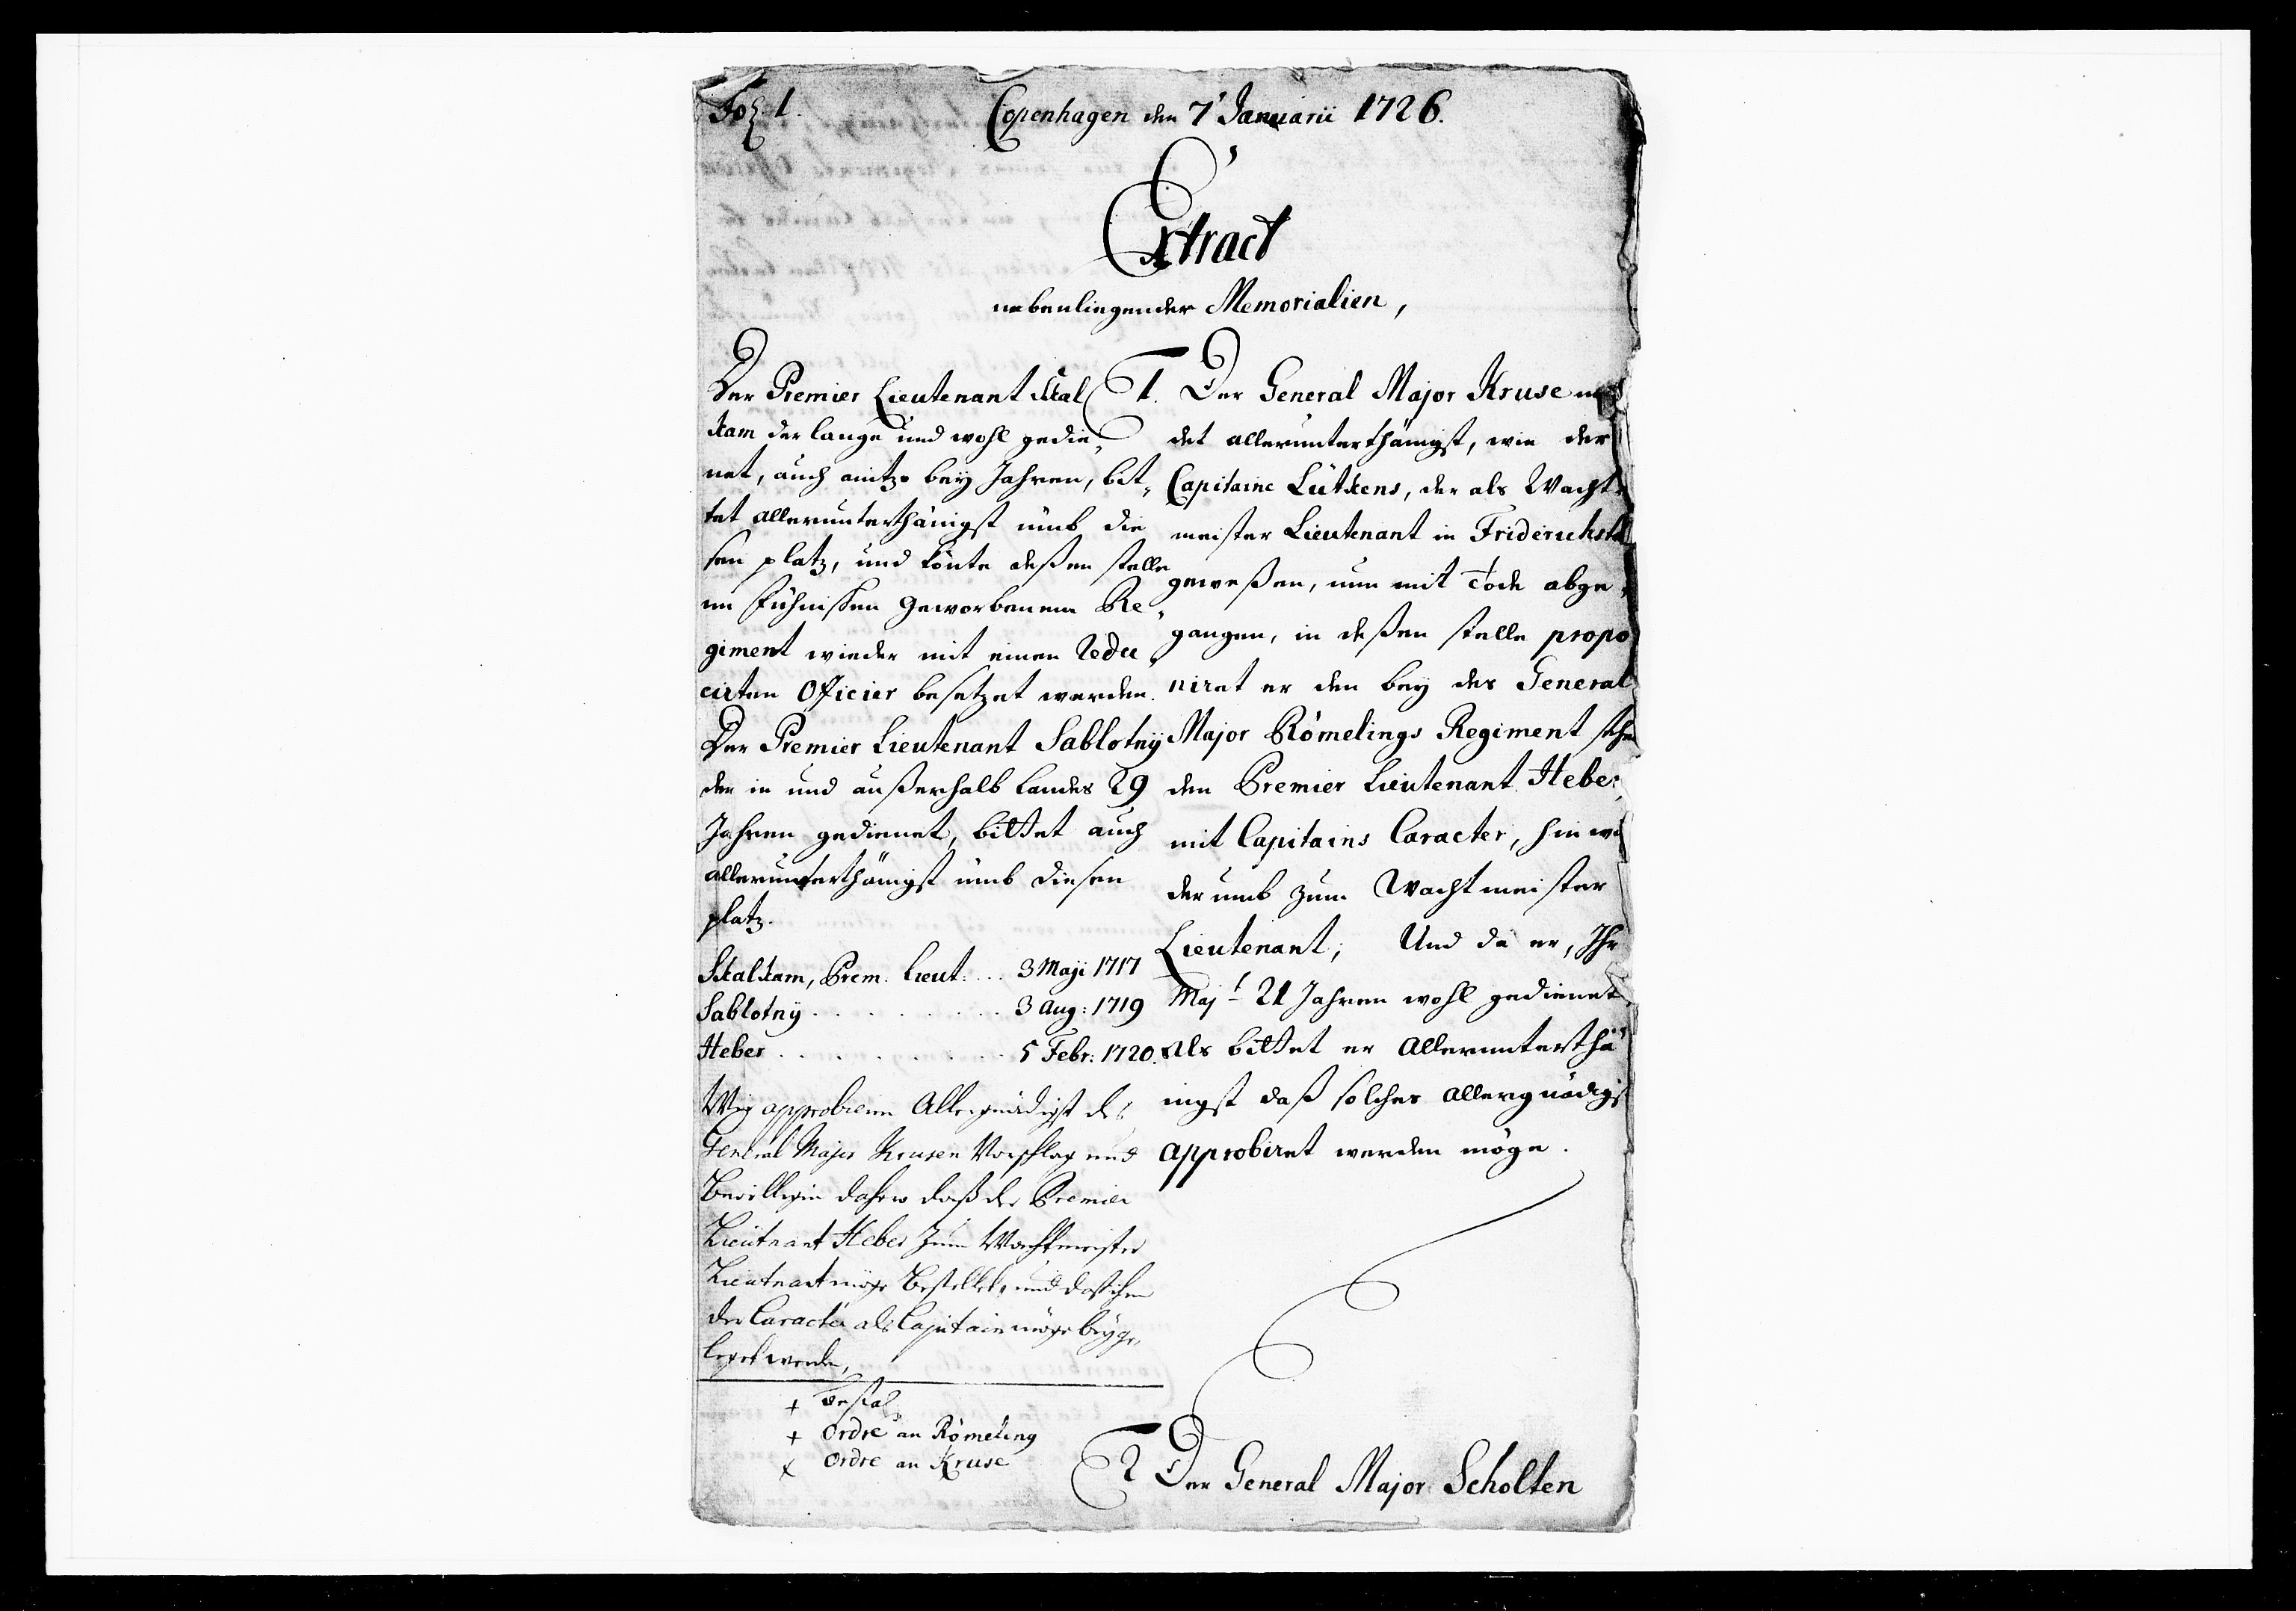 Fol. 1.
Copenhagen den 7t Januarii 1726.
Extract
nebenliegender Memorialien,
Der Premier Lieutenant Skal
kam der lange und wohl gedie„
net, auch anitzo bey Jahren, bit„
tet allerunterthänigst umb die
sen platz, und könte deßen stelle
im Fühnischen Geworbenem Re„
giment wieder mit einen Redu„
cirten Officier besetzet werden.
Der Premier Lieutenant Sablotnÿ
der in und außerhalb Landes 29
Jahren gedienet, bittet auch
allerunterthänigst umb diesen
platz.
Skalkam, Prem. Lieut: ... 3 Maji 1717
Sablotnÿ . . . . . . . . . 3 Aug: 1719
Heber . . . . . . . . . . 5 Febr: 1720.
Wir approbiren Allergnädigst des
General Major Krusen Vorschlag und
Bewilligen dahero daß der Premier
Lieutnant Heber zum Wachtmeister
Lieutnant möge Bestellet, und daß ihm
der Caracter als Capitain möge beyge„
leget werden,
+ Bestal„
+ Ordre an Römeling
+ Ordre an Kruse
1. Der General Major Kruse mel
det allerunterthänigst, wie der
Capitaine Lütkens, der als Wacht„
meister Lieutenant in Friderichst
geweßen, nun mit Tode abge„
gangen, in deßen stelle propo
niret er den bey des General
Major Römelings Regiment stehn
den Premier Lieutenant Heber
mit Capitains Caracter, hinwi
derumb zum Wachtmeister
Lieutenant; Und da er, Ihr
Majt 21 Jahren wohl gedienet,
als bittet er Allerunterthä
nigst daß solches allergnädigst
approbiret werden möge.
2 Der General Major Scholten